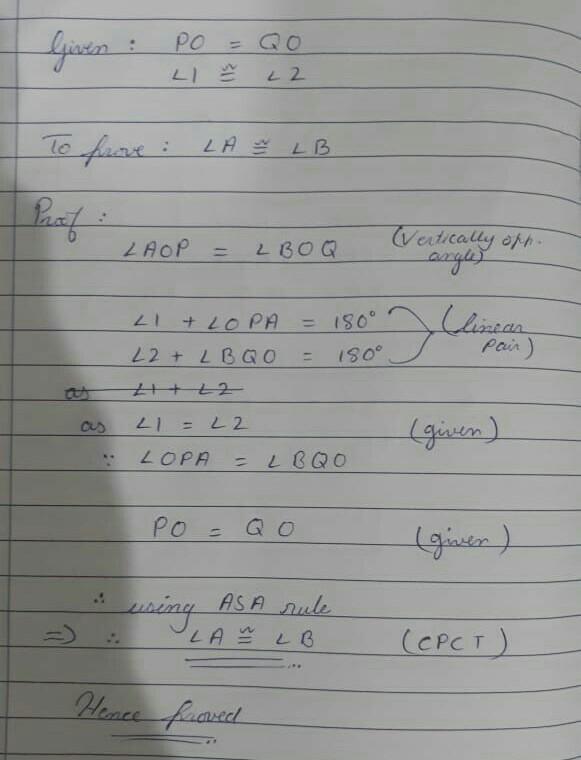 Given : PO = QO
∠1 ≅ ∠2
To prove : ∠A ≅ ∠B
Proof :
∠AOP = ∠BOQ (Vertically opp. angle)
∠1 + ∠OPA = 180°
∠2 + ∠BQO = 180° (linear pair)
as ∠1 + ∠2
as ∠1 = ∠2 (given)
∵ ∠OPA = ∠BQO
PO = QO (given)
∴ using ASA rule
=> ∴ ∠A ≅ ∠B (CPCT)
Hence proved